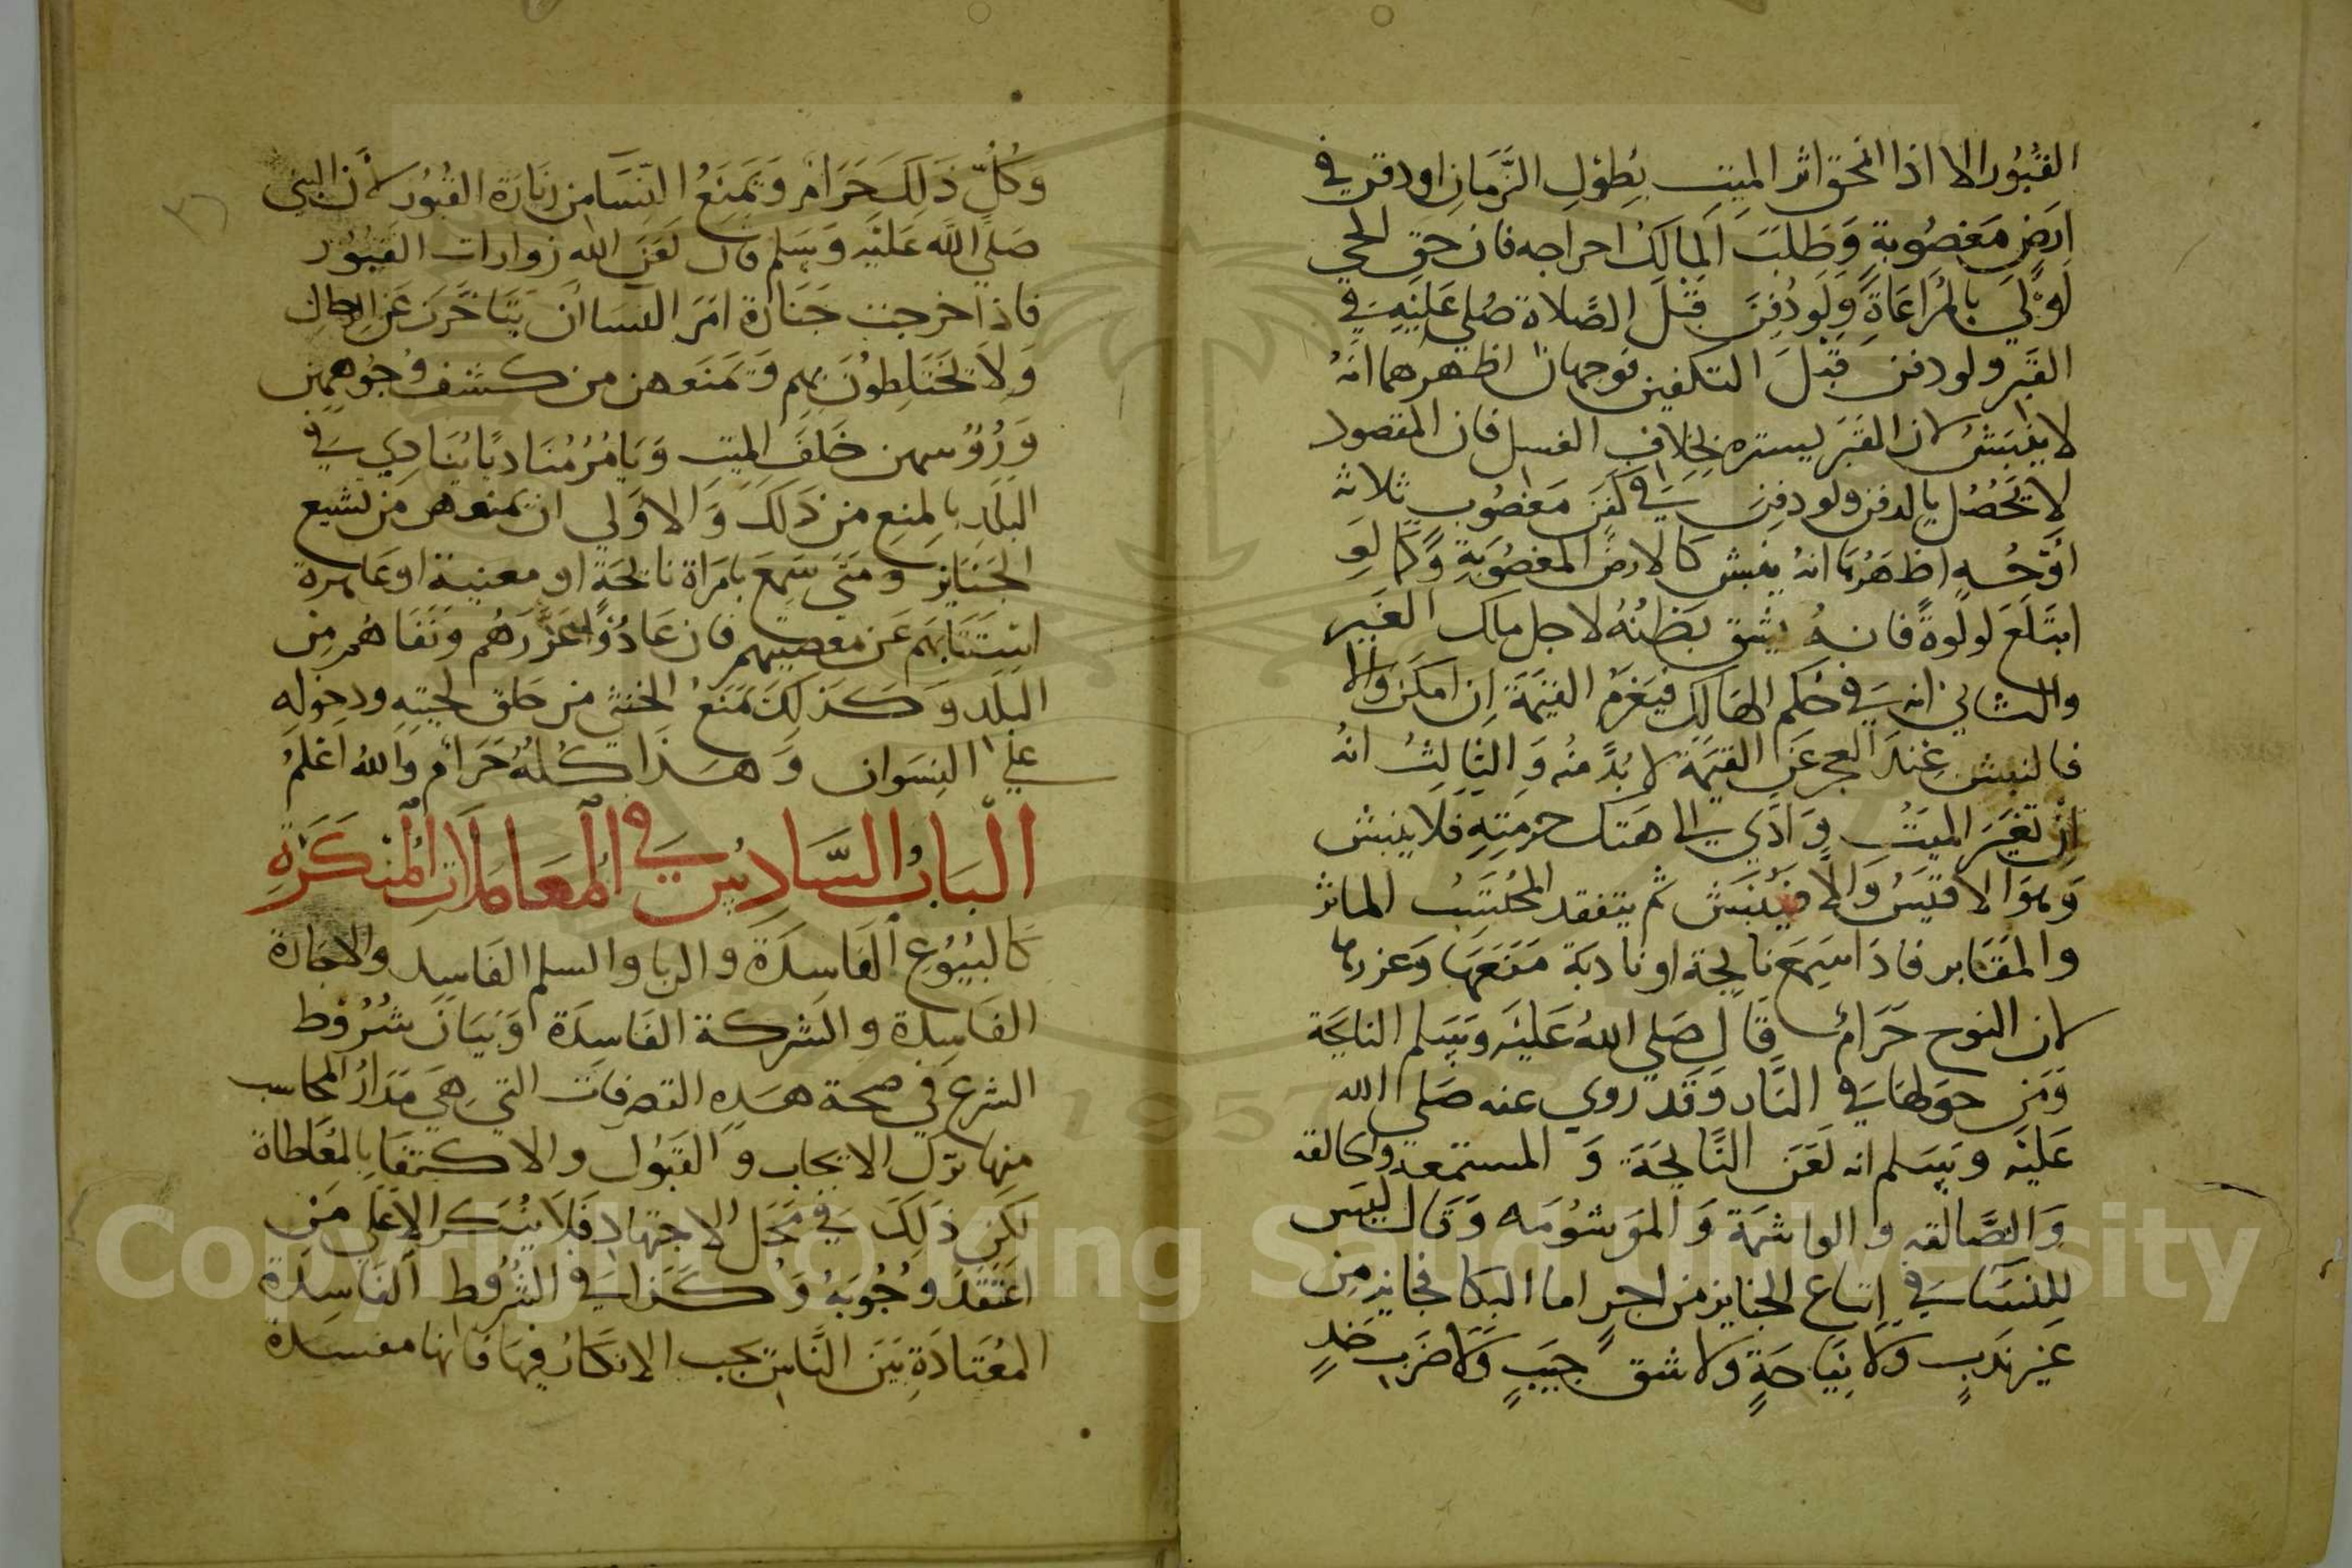 القُبُور الا اذا انمحق اثر الميتِ بِطُولِ الزَّمَانِ او دفن في
ارَضٍ مَغصُوبة وَطَلبَ المالِكُ اخراجه فان حق الحي
أوْلي بالمُرَاعَاةِ وَلَو دُفِنَ قَبْلَ الصَّلاة صُلي عَلَيْهِ في
القَبر ولو دفن قَبْلَ التكفين فوجهان اظهرهما انهُ
لا ينبَشُ لان القَبَر يستره بخِلافِ الغسل فان المقصود
لا يَحصُل بالدفن ولو دفِنَ في كَفَن مَغصُوبٍ ثلاثة
أوْجُهٍ اظهَرُها انهُ ينبش كالارضِ المغصُوبَةِ وَكما لَو
ابتَلَعَ لولوةً فانهُ يشق بَطنُهُ لاجل ملك الغَير
والثاني انه في حُكم الهَالِكِ فيَغرَمُ القيَمَةَ اِن امكَنَ وَالا
فالنبش عِندَ العجز عَنِ القيَمَة لا بُدَّ منهُ وَالثالِثُ انهُ
اِن تغيَر الميَتُ وَادَّي الى هَتك حرمتِهِ فلا ينبش
وَهوَ الاقيَسُ وَالا فيُنبَش ثم يتفقد المحُتَسِبُ الماثر
والمقَابر فاذَا سَمِعَ نايحة او نادبَة مَنعَهَا وَعزرها
لان النوح حَرَامٌ قالِ صَلي اللهُ عَليَه وَسَلم النايحَة
وَمَن حوَلهَا في النَّار وَقَد روي عنه صَلي الله
عَليَه وسَلم انه لَعَنَ النَّايحَة وَ المستمعه والحالقه
وَالصَّالقه والواشمَة وَالموَشوُمَه وَقال ليَس
للِنسَا في اِتباع الجنايز من اجرٍ اما البكا فجايز مِن
غَير نَدبٍ وَلا نِيَاحَةٍ ولا شق جَيبٍ وَلا ضَربِ خَدٍ
وَكُلُّ ذَلِكَ حَرَامٌ وَيَمنَعُ النِّسَا من زيَارَة القُبُور لأن النبي
صَلي الله عَليَه وَسَلم قال لَعَنَ الله زوارات القبُوُر
فاذا خرجت جَنَازة امَرَ النسَا أن يَتَاخَّرنَ عَنِ الرجال
وَلا يَختَلِطوُنَ بهم وَيَمنَعهن من كشف وُجُوههن
وَرُؤُسهن خَلفَ الميَت وَيَامُرُ مُنَاديًا يُنَادِي في
البَلَدِ بالمنِع من ذَلكَ وَالاَولي ان يمنعهن مَن تشيع
الجَنَايزِ وَمتي سَمِعَ بامرَاة نايحَةٍ او مغنية او عَاهرة
استَتَابَهم عَن مَعصيتهم فان عَادُوا عَزَّرَهُم وَنَفَاهُم مِن
البلَدِ وَكَذلِكَ يَمنَعُ الخنثي من حَلق لحيتِه ودخوله
علي النِسوان وَهَذا كُلُّهُ حَرَامٌ وَاللهُ اعْلَمُ
البَابُ السَّادِسُ في المُعَامَلَاتِ المُنكَرَةِ
كالبيُوُع الفَاسدَةِ والربا والسلم الفَاسِد والاجَارة
الفَاسِدة والشركة الفَاسِدَة وَبَيَان شُرُوُط
الشرع في صحة هَذِهِ التصرفات التي هِيَ مَدَارُ المكاسب
منها ترك الايجاب وَ القَبُول والاكتفَا بالمُعَاطاة
لكِن ذَلِكَ في مَحَل الاجتهَاد فَلا يُنكَر الا عَلي مَن
اعتَقَدَ وُجُوبَهُ وَكَذا في الشُرُوط الفَاسِدَة
المُعتَادَةِ بَينَ النَّاسِ يجب الانكَارُ فيهَا فانها مفسدة